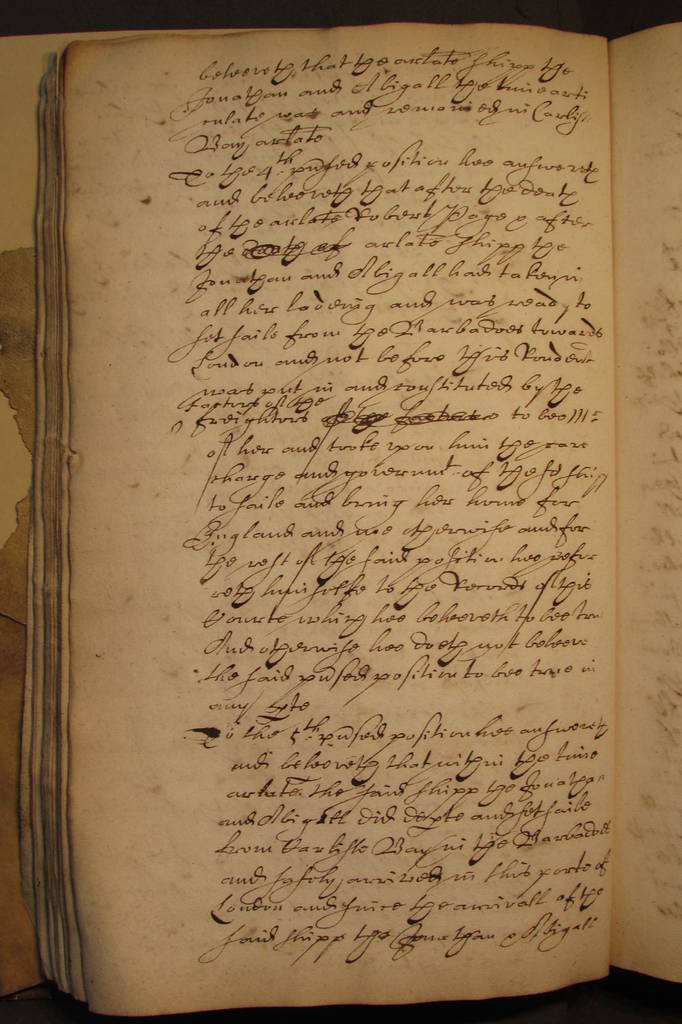 beleeveth, that the arlate shipp the
Jonathan and Abigall the time arti
culate was and remained in Carlis
Bay arlate
To the 4th pnsed position hee answereth
and beleeveth that after the death
of the arlate Robert Page & after
the death of arlate shipp the
Jonathan and Abigall had taken in
all her ladeing and was ready to
set saile from the Barbadoes towards
London and not before this Rondent
was put in and constituted by the
factors of the
freightors to bee Mr
of her and tooke upon him the care
charge and governmt of the sd shipp
to saile and bring her home for
England and noe otherwise and for
the rest of the said position hee refer
reth himselfe to the Records of this
Courte which hee beleeveth to bee true
And otherwise hee doeth not beleeve
the said pnsed position to bee true in
any pte
To the 5th pnsed position hee answereth
and beleeveth that within the time
arlate the said shipp the Jonathan
and Abigall did depte and set saile
from Carlisle Bay in the Barbadoes
and safely arrived in this porte of
London and since the arrivall of the
said shipp the Jonathan & Abigall